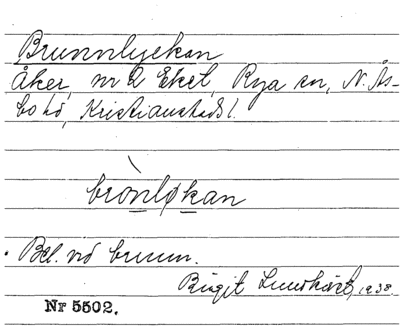 Brunnlyckan
Åker, nr 2 Ekel, Rya sn, N. Ås-
bo hd, Kristianstads l.
brònløkan
Bel. vid brunn.
Birgit Lundkvist, 1938.
Nr 5502.